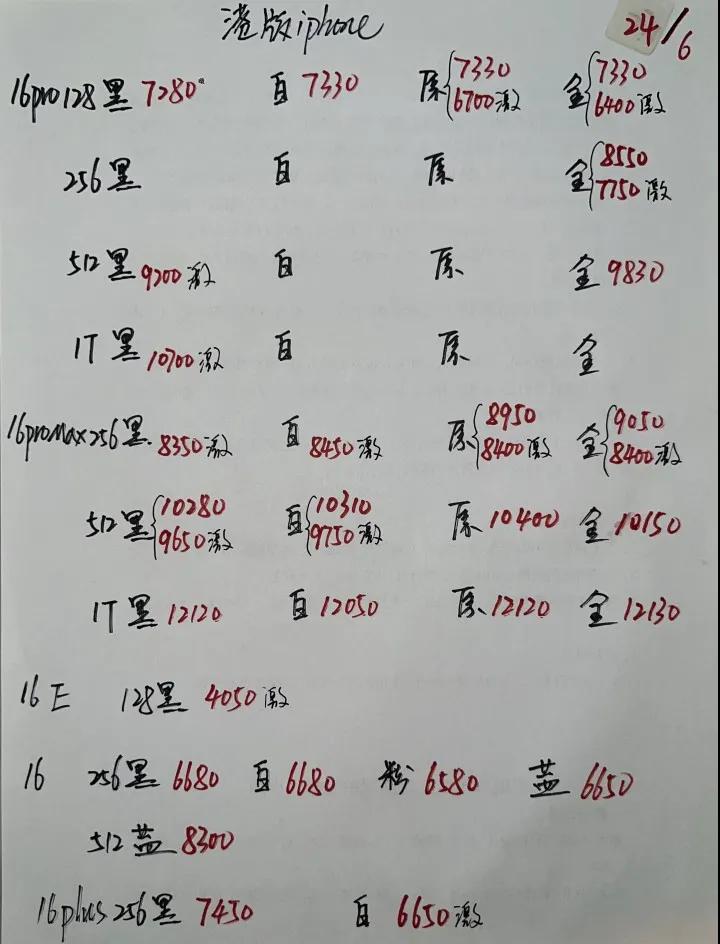 港版iphone 24/6
16pro128黑 7280 白 7330 原{7330 6700激 金{7330 6400激
256黑 白 原 金{8550 7750激
512黑 9200激 白 原 金 9830
1T黑 10700激 白 原 金
16promax256黑 8350激 白 8450激 原{8950 8400激 金{9050 8400激
512黑{10280 9650激 白{10310 9750激 原 10400 金 10150
1T黑 12120 白 12050 原 12120 金 12130
16E 128黑 4050激
16 256黑 6680 白 6680 粉 6580 蓝 6650
512蓝 8300
16plus256黑 7450 白 6650激